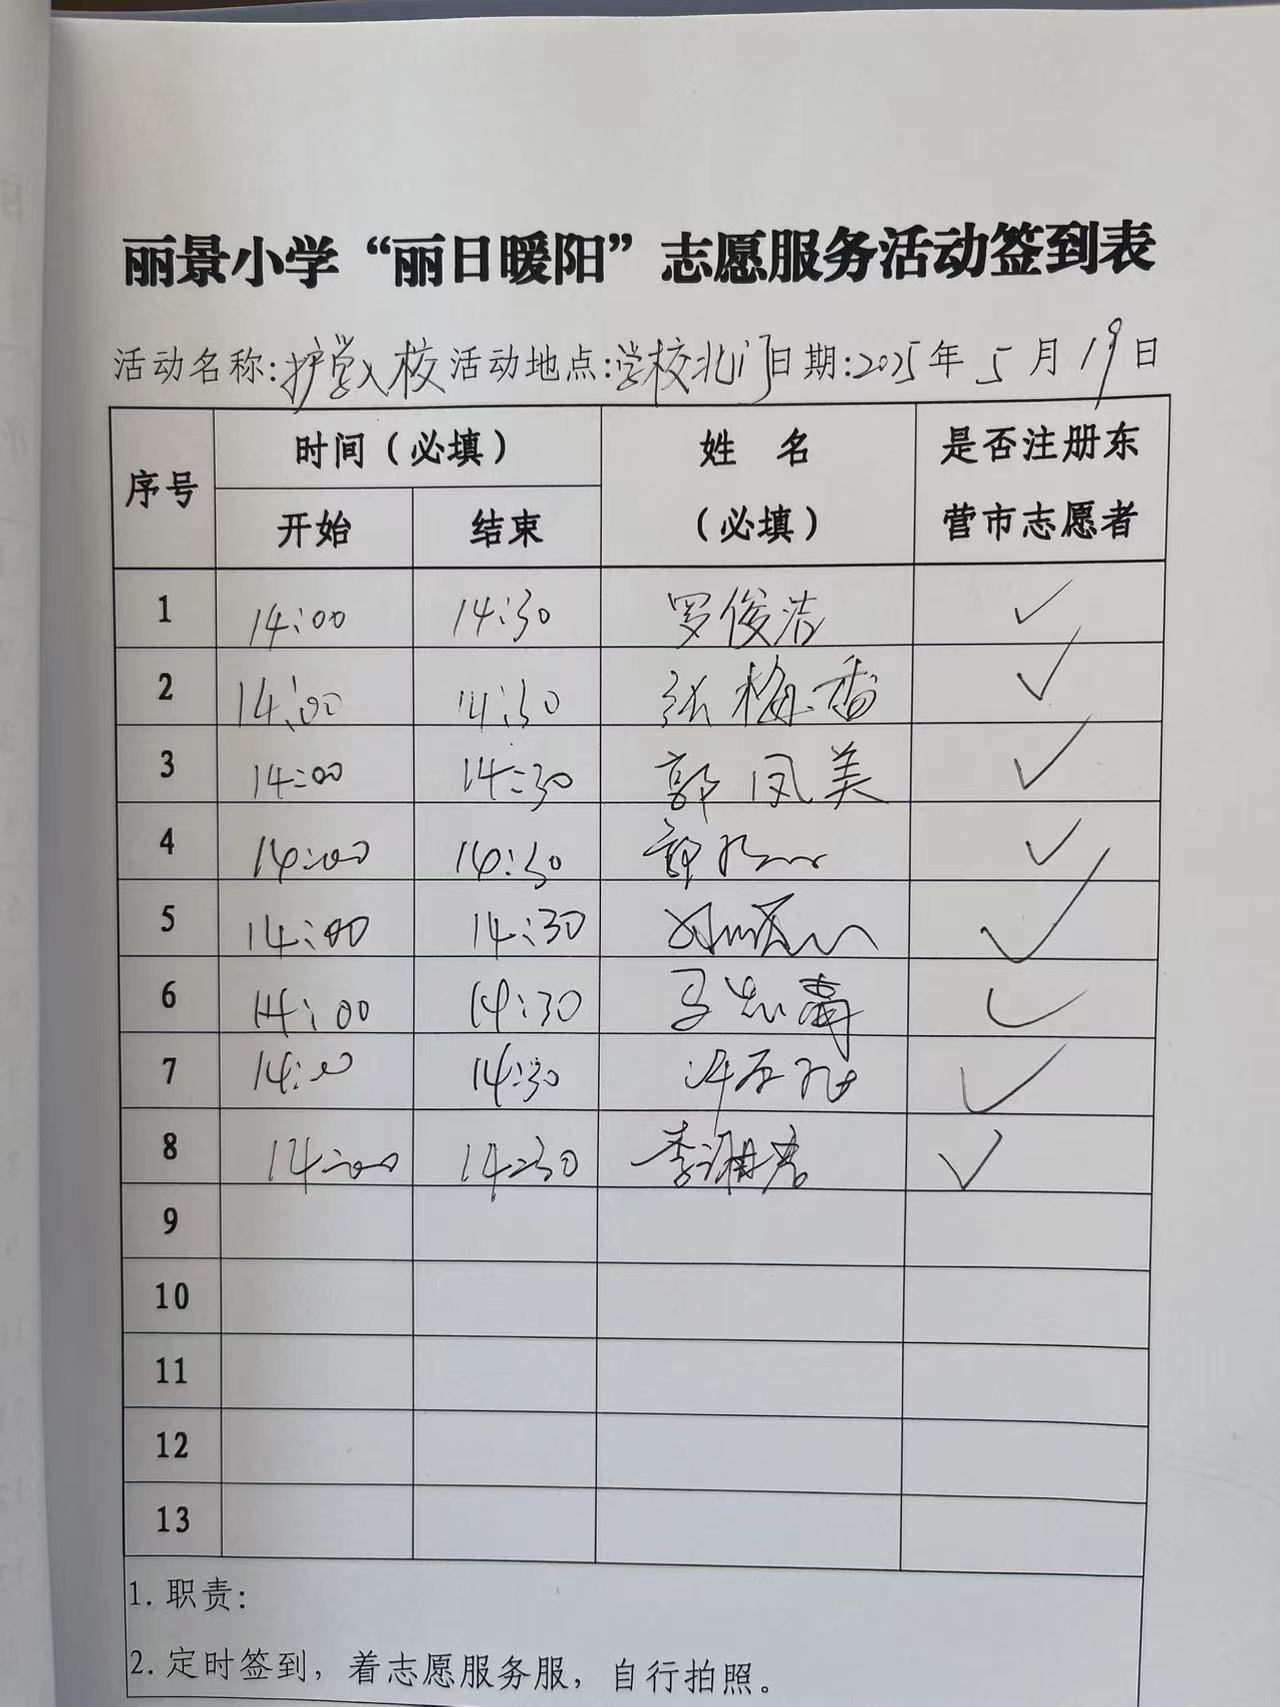 丽景小学“丽日暖阳”志愿服务活动签到表
活动名称:护学入校 活动地点:学校北门 日期:2025年5月19日
序号 时间(必填) 姓 名(必填) 是否注册东营市志愿者
开始 结束
1 14:00 14:30 罗俊洁 ✓
2 14:00 14:30 张梅香 ✓
3 14:00 14:30 郭凤美 ✓
4 14:00 14:30 ✓
5 14:00 14:30 ✓
6 14:00 14:30 马志 ✓
7 14:00 14:30 ✓
8 14:00 14:30 李湘君 ✓
9
10
11
12
13
1. 职责:
2. 定时签到，着志愿服务服，自行拍照。